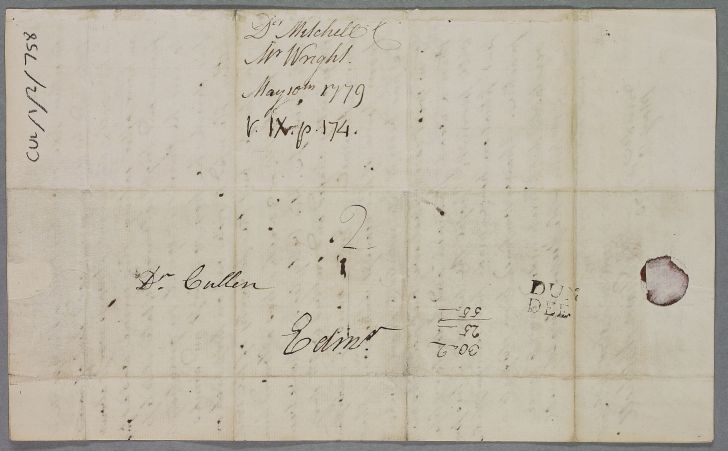 CUL/1/2/758
Drs Mitchell &
Mr Wright.
May 10th 1779
V. IX. p. 174.
2
Dr Cullen
Edinr
DUN
DEE
30
25
55